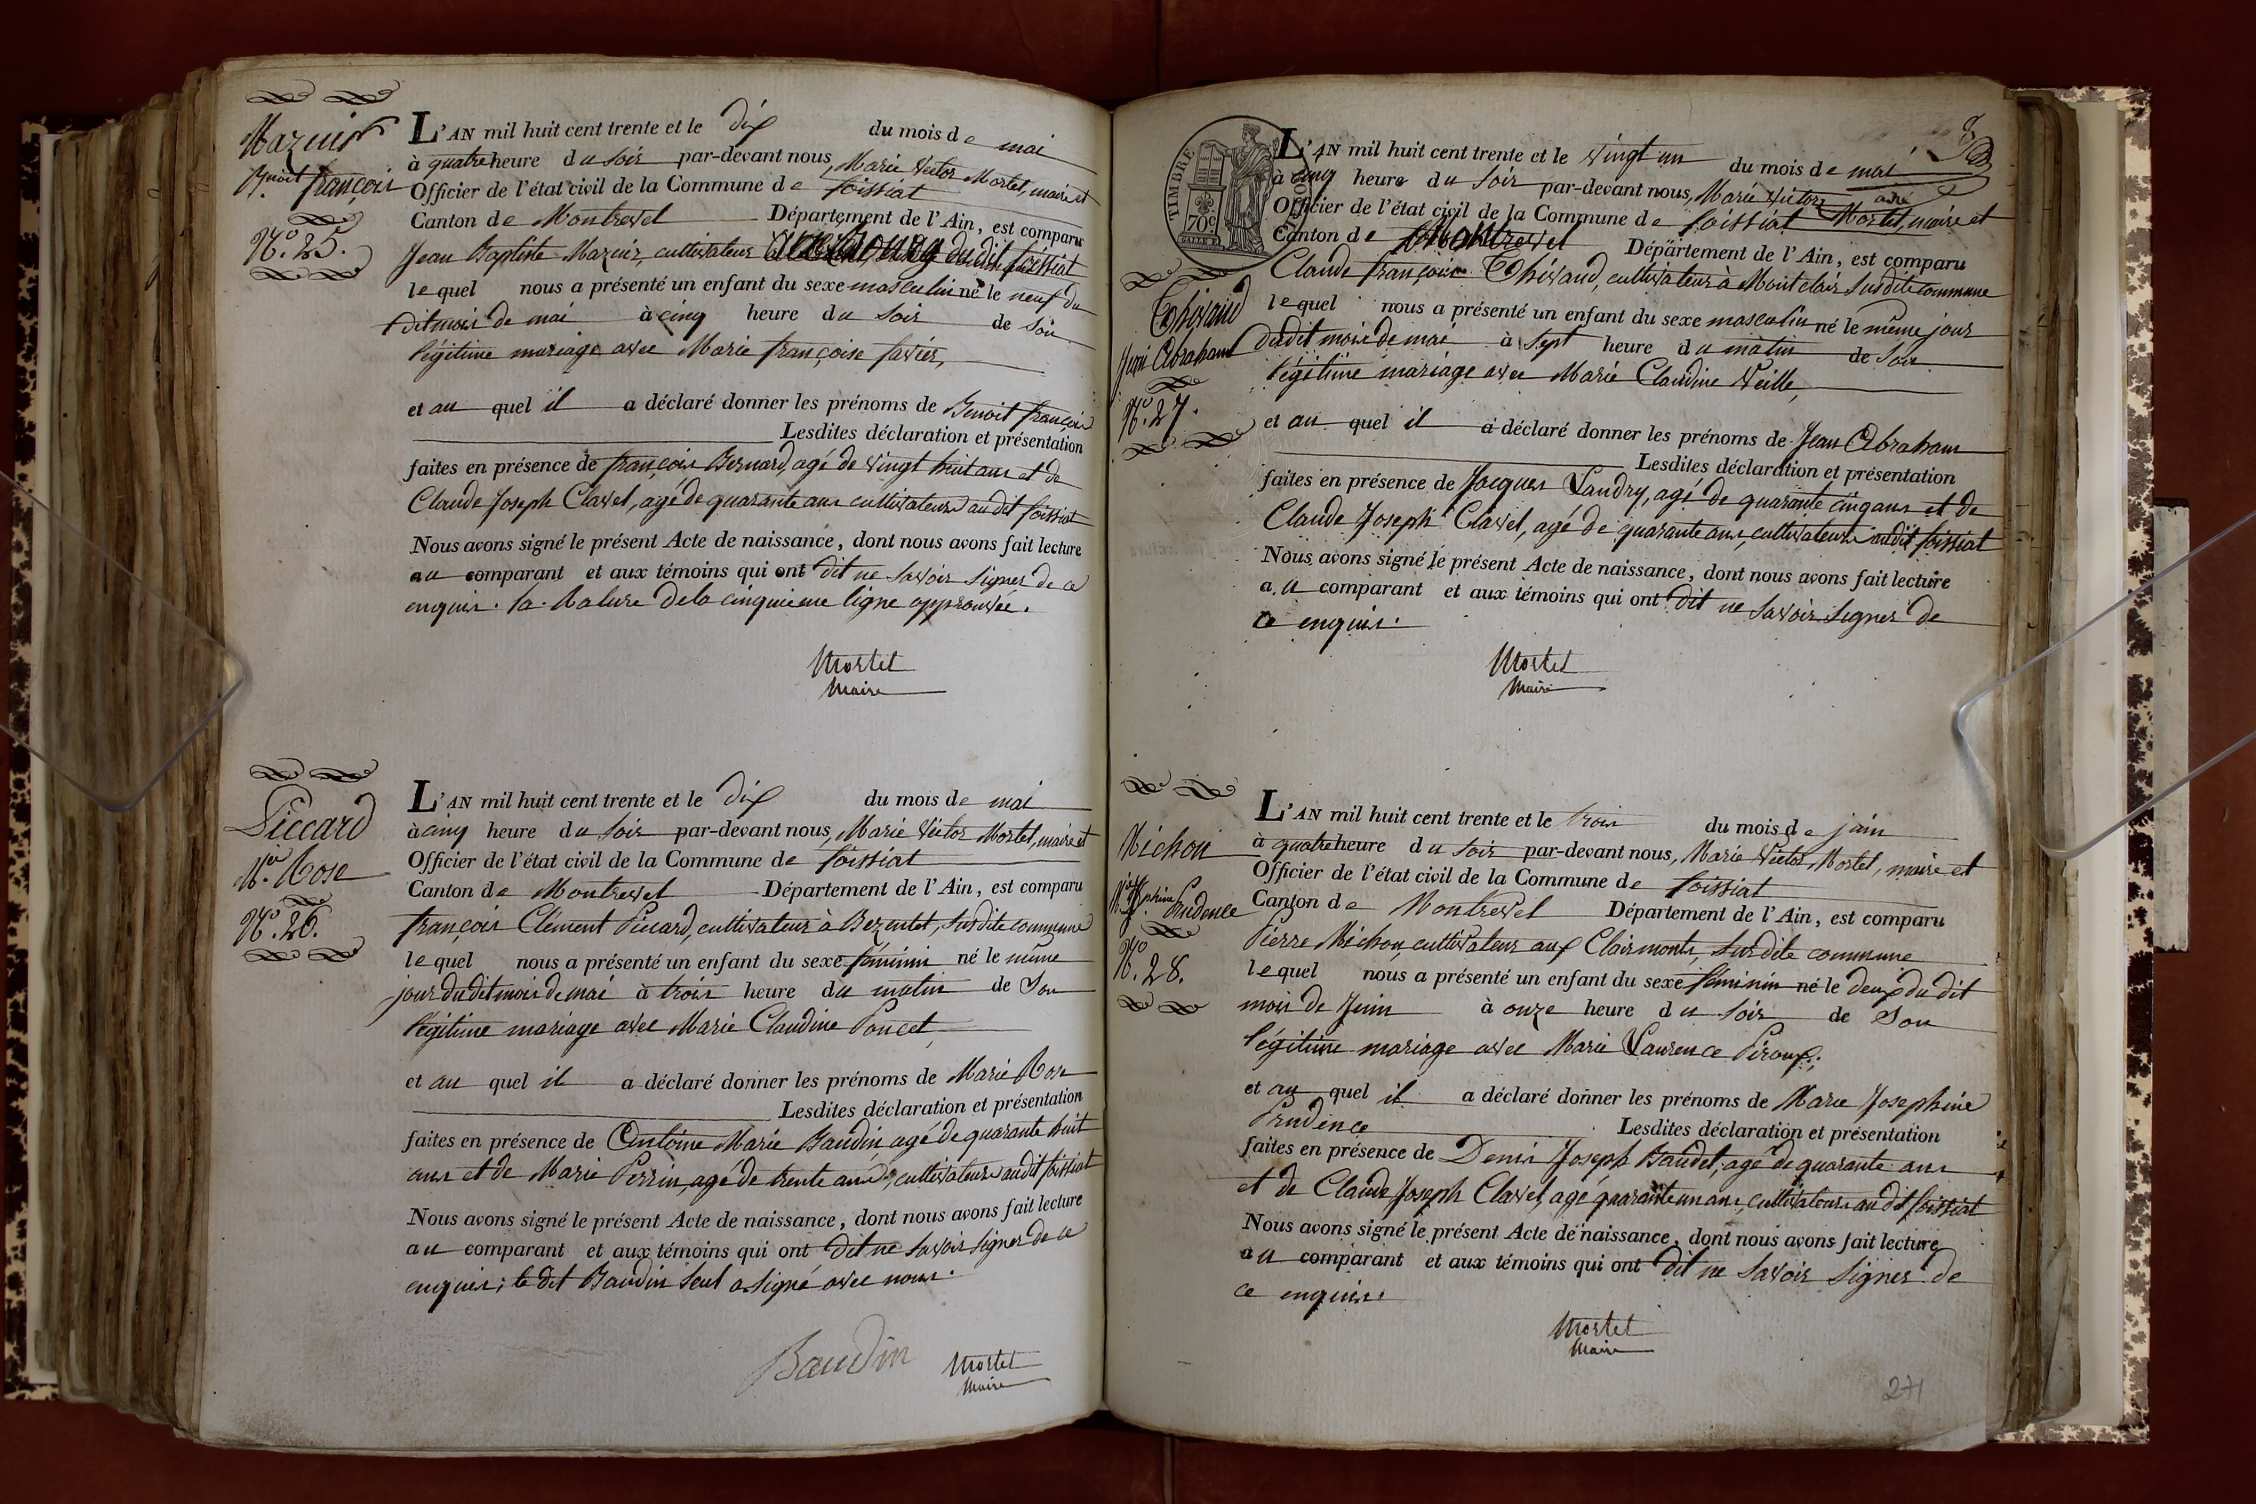 Mazuir
Benoit françois
N.º 25.
L'AN mil huit cent trente et le dix du mois de mai
à quatre heure du soir par-devant nous, Marie Victor Mortel, maire et
Officier de l'état civil de la Commune de foissiat
Canton de Montrevel Département de l'Ain, est comparu
Jean Baptiste Mazuir, cultivateur du dit foissiat
lequel nous a présenté un enfant du sexe masculin né le neuf du
dit mois de mai à cinq heure du soir de son
légitime mariage avec Marie françoise favier,
et au quel il a déclaré donner les prénoms de Benoit françois
Lesdites déclaration et présentation
faites en présence de françois Bernard, agé de vingt huit ans et de
Claude Joseph Clavel, agé de quarante ans cultivateurs au dit foissiat
Nous avons signé le présent Acte de naissance, dont nous avons fait lecture
au comparant et aux témoins qui ont dit ne savoir signer de ce
enquis. la Rature de la cinquieme ligne approuvée.
Mortel
Maire
Piccard
M.ie Rose
N.º 26.
L'AN mil huit cent trente et le dix du mois de mai
à cinq heure du soir par-devant nous, Marie Victor Mortel, maire et
Officier de l'état civil de la Commune de foissiat
Canton de Montrevel Département de l'Ain, est comparu
françois Clément Piccard, cultivateur à Bezentet, susdite commune
lequel nous a présenté un enfant du sexe féminin né le même
jour du dit mois de mai à trois heure du matin de son
légitime mariage avec Marie Claudine Poncet,
et au quel il a déclaré donner les prénoms de Marie Rose
Lesdites déclaration et présentation
faites en présence de Antoine Marie Baudin agé de quarante huit
ans et de Marie Perrin, agé de trente ans, cultivateurs au dit foissiat
Nous avons signé le présent Acte de naissance, dont nous avons fait lecture
au comparant et aux témoins qui ont dit ne savoir signer de ce
enquis; le dit Baudin seul a signé avec nous.
Baudin Mortel
Maire
8
TIMBRE
70c
L'AN mil huit cent trente et le vingt un du mois de mai
à cinq heure du soir par-devant nous, Marie Victor Mortel, maire et
Officier de l'état civil de la Commune de foissiat
Canton de Montrevel Département de l'Ain, est comparu
Claude françois Thévand, cultivateur à Montclair susdite commune
Thévand
Jean Abraham
N.º 27.
lequel nous a présenté un enfant du sexe masculin né le même jour
dudit mois de mai à sept heure du matin de son
légitime mariage avec Marie Claudine Veille,
et au quel il a déclaré donner les prénoms de Jean Abraham
Lesdites déclaration et présentation
faites en présence de Jacques Landry, agé de quarante cinq ans et de
Claude Joseph Clavel, agé de quarante ans, cultivateurs au dit foissiat
Nous avons signé le présent Acte de naissance, dont nous avons fait lecture
au comparant et aux témoins qui ont dit ne savoir signer de
ce enquis.
Mortel
Maire
Michon
M.ie Jphine Prudence
N.º 28.
L'AN mil huit cent trente et le trois du mois de juin
à quatre heure du soir par-devant nous, Marie Victor Mortel, maire et
Officier de l'état civil de la Commune de foissiat
Canton de Montrevel Département de l'Ain, est comparu
Pierre Michon, cultivateur aux Clairmonts, susdite commune
lequel nous a présenté un enfant du sexe féminin né le deux du dit
mois de Juin à onze heure du soir de son
légitime mariage avec Marie Laurence Piroux;
et au quel il a déclaré donner les prénoms de Marie Josephine
Prudence Lesdites déclaration et présentation
faites en présence de Denis Joseph Baudet, agé de quarante ans
et de Claude Joseph Clavel, agé quarante un ans, cultivateurs au dit foissiat
Nous avons signé le présent Acte de naissance, dont nous avons fait lecture
au comparant et aux témoins qui ont dit ne savoir signer de
ce enquis.
Mortel
Maire
271